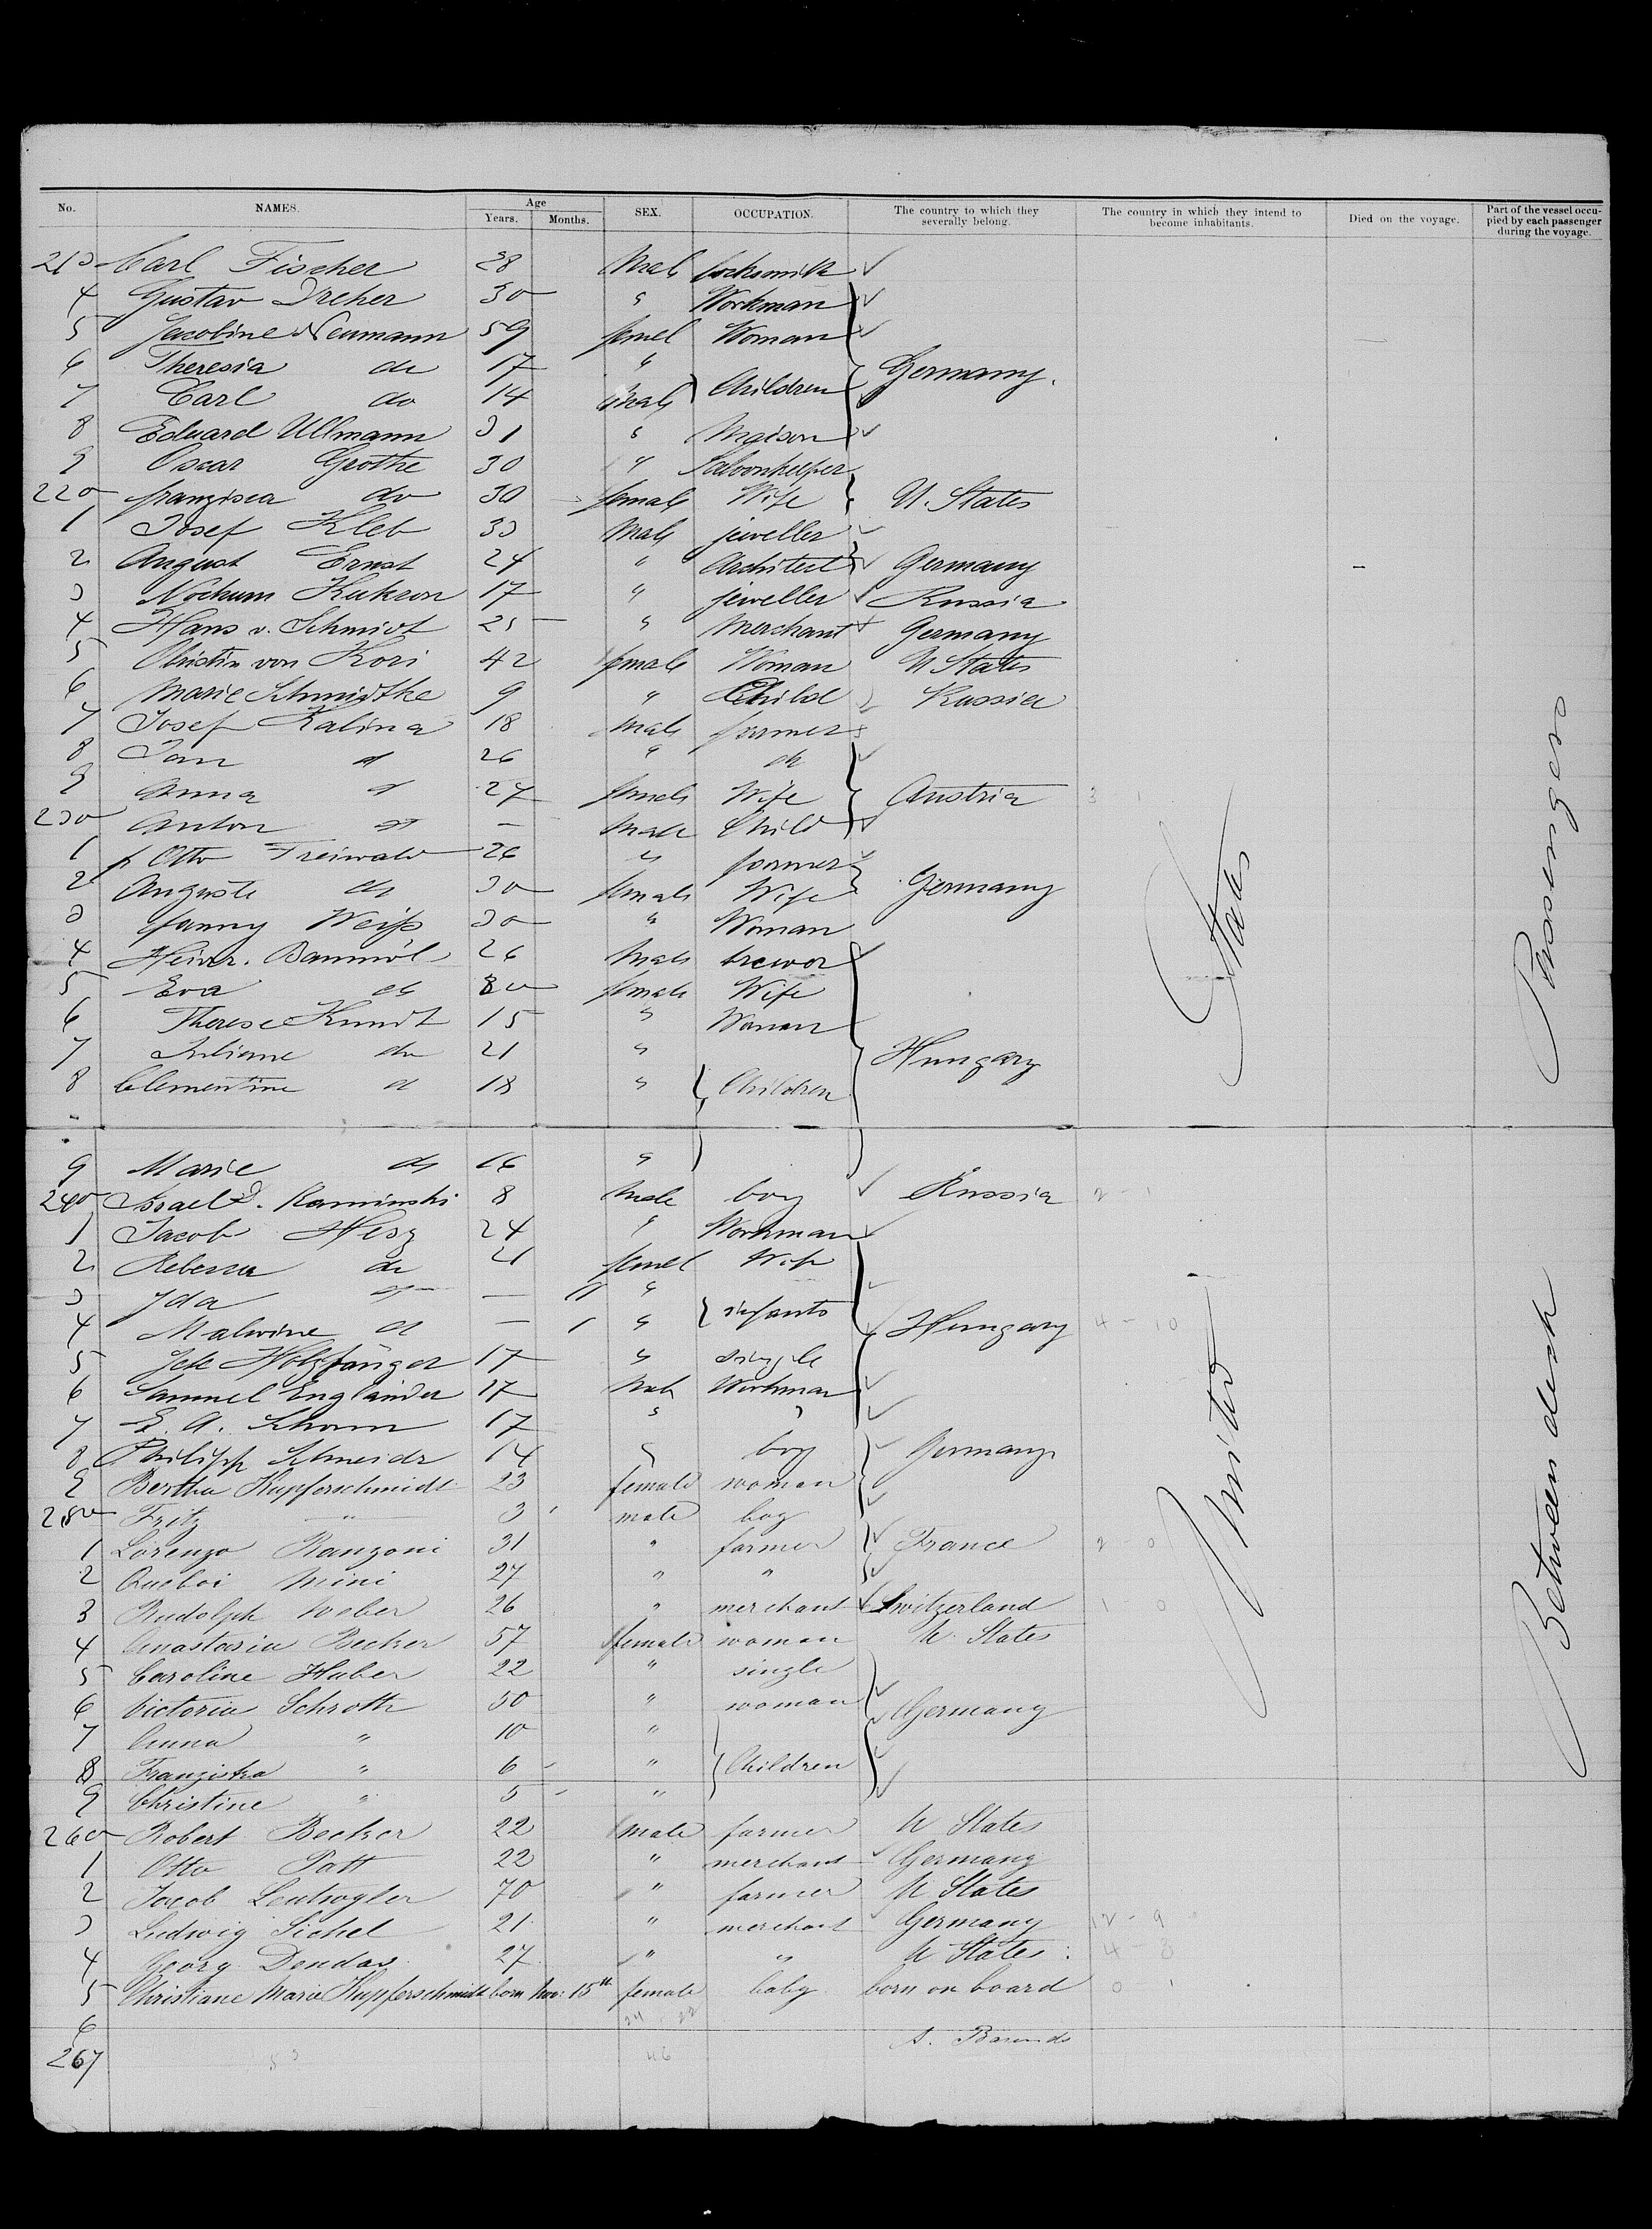 No. NAMES. Age Years. Months. SEX. OCCUPATION. The country to which they severally belong. The country in which they intend to become inhabitants. Died on the voyage. Part of the vessel occupied by each passenger during the voyage.
213 Carl Fischer 28 Male Locksmith
4 Gustav Dreher 30 " Workman
5 Jacobine Neumann 59 femel Woman
6 Theresia do 17 "
7 Carl do 14 male Children Germany.
8 Eduard Ullmann 31 " Maison
9 Oscar Grothe 30 " Saloonkeeper
220 franzisca do 30 female Wife U. States
1 Josef Kleb 33 Male jeweller
2 August Ernst 24 " Architect Germany
3 Nochum 17 " jeweller Russia
4 Hans v. Schmidt 25 " Merchant Germany
5 Christin von Kori 42 female Woman U States
6 Marie Schmidtke 9 " Child Russia
7 Josef Kalina 18 Male farmer
8 Jan d 26 " do
9 Anna d 27 female Wife Austria
230 Anton d — Male Child
1 Otto Freiwald 26 " farmer
2 Auguste do 30 female Wife Germany
3 fanny Weiss 30 " Woman
4 Heinr. 26 Male brewer
5 Eva do female Wife
6 Therese Kundt 15 " Woman
7 Juliane do 21 " Hungary
8 Clementine d 18 " Children
9 Marie do 16 "
240 Israel D. Kaminski 8 Male boy Russia
1 Jacob Herz 24 " Workman
2 Rebecca do 21 femel Wife
3 Ida d — 11 "
4 Malwine d — 1 " infants Hungary
5 Holzfänger 17 " single
6 Samuel Engländer 17 Male Workman
7 17 " "
8 Philipp Schneidr 14 " boy Germany
9 Bertha Kupferschmidt 23 female woman
250 Fritz " 3 male boy
1 Lorenzo Ranzoni 31 " farmer France
2 Mini 27 " "
3 Rudolph Weber 26 " merchant Switzerland
4 Anastasia Becker 57 female woman U. States
5 Caroline Huber 22 " single
6 Victoria Schroth 50 " woman Germany
7 Anna " 10 "
8 Franziska " 6 " Children
9 Christine " 5 "
260 Robert Becker 22 male farmer U States
1 Otto Patt 22 " merchant Germany
2 Jacob 70 " farmer U States
3 Ludwig Sichel 21 " merchant Germany
4 Georg Dendas 27 " " U States
5 Christiane Marie Kupferschmidt born Nov: 15th female baby born on board
6
267
United States
Between deck Passengers